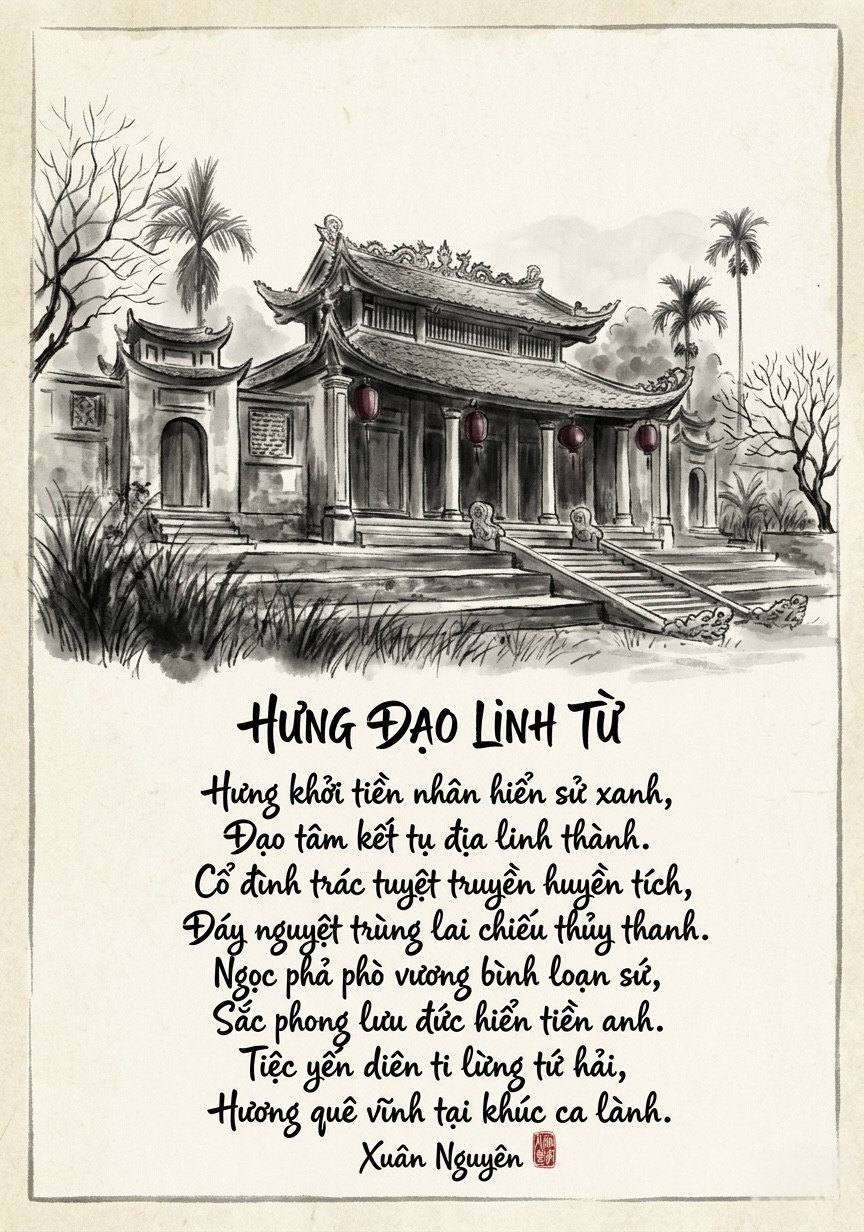 HƯNG ĐẠO LINH TỪ
Hưng khởi tiền nhân hiển sử xanh,
Đạo tâm kết tụ địa linh thành.
Cổ đình trác tuyệt truyền huyền tích,
Đáy nguyệt trùng lai chiếu thủy thanh.
Ngọc phả phò vương bình loạn sứ,
Sắc phong lưu đức hiển tiền anh.
Tiệc yến diên ti lừng tứ hải,
Hương quê vĩnh tại khúc ca lành.
Xuân Nguyên